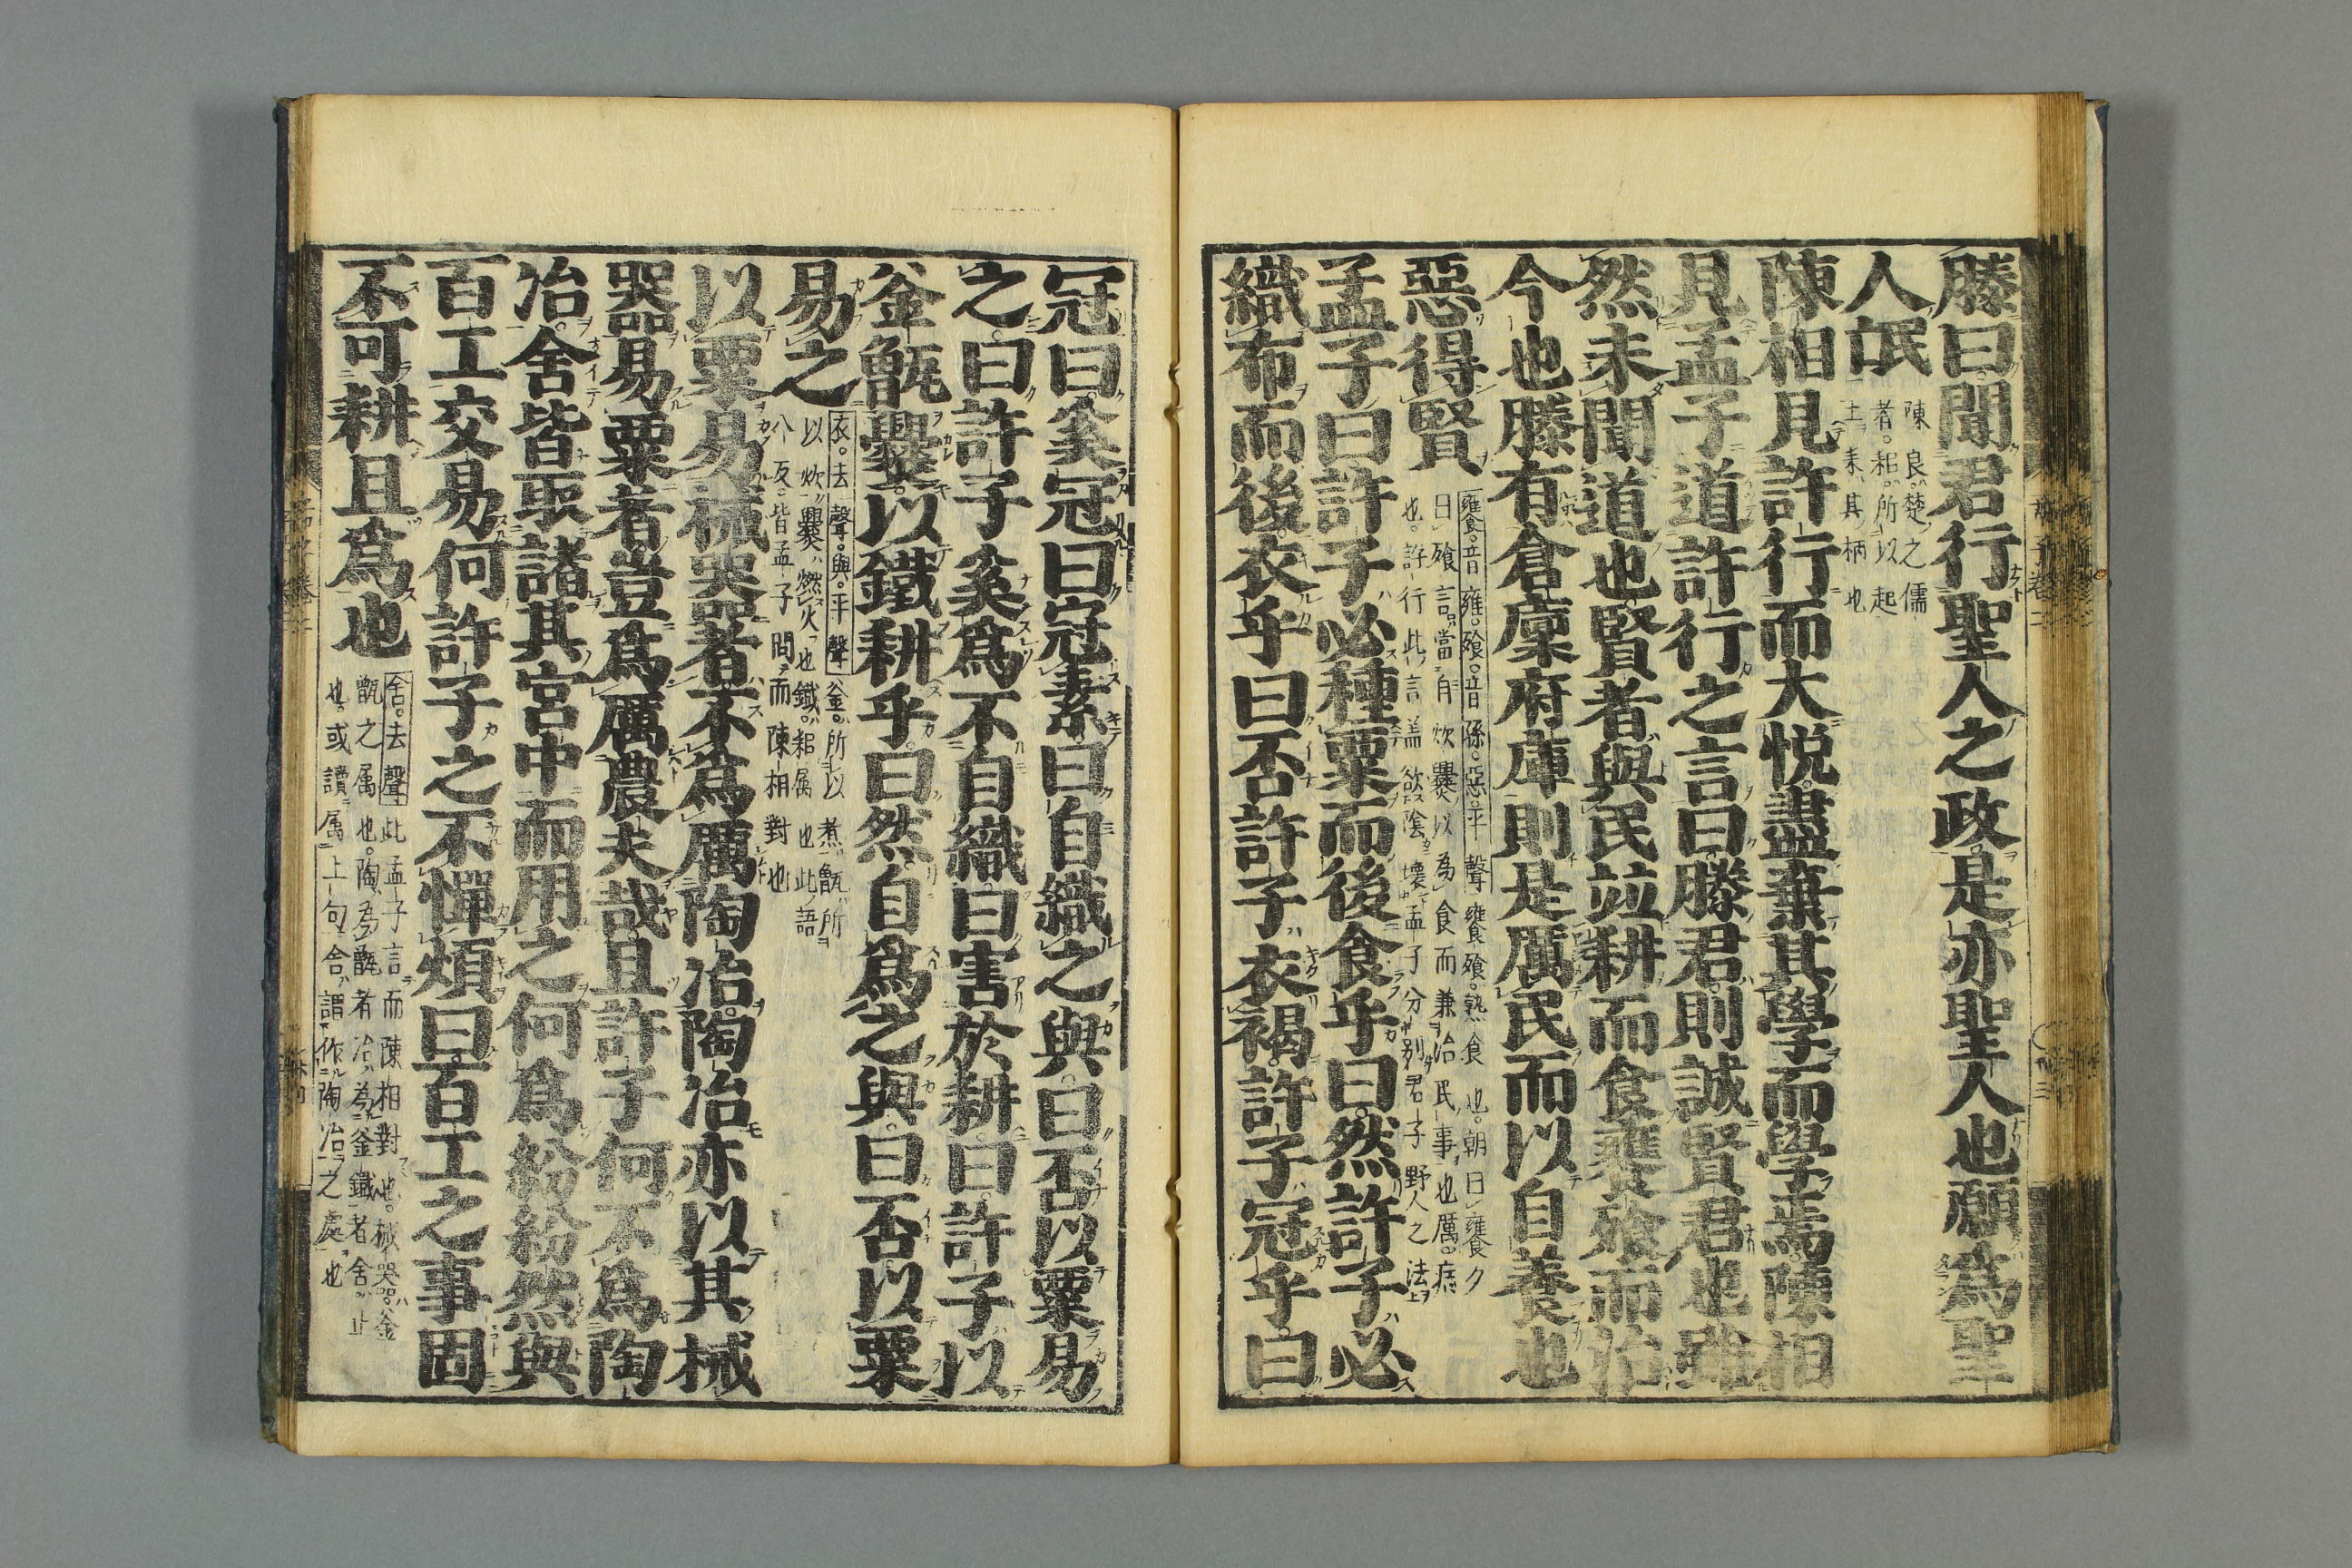 滕曰聞君行聖人之政是亦聖人也願爲聖
人氓
陳良楚之儒
者耜所以起
土耒其柄也
陳相見許行而大悦盡棄其學而學焉陳相
見孟子道許行之言曰滕君則誠賢君也雖
然未聞道也賢者與民竝耕而食饔飧而治
今也滕有倉廩府庫則是厲民而以自養也
惡得賢
饔音雍飧音孫惡平聲饔飧熟食也朝曰饔夕
曰飧言當自炊爨以為食而兼治民事也厲病
也許行此言盖欲陰壊孟子分別君子野人之法
孟子曰許子必種粟而後食乎曰然許子必
織布而後衣乎曰否許子衣褐許子冠乎曰
冠曰奚冠曰冠素曰自織之與曰否以粟易
之曰許子奚爲不自織曰害於耕曰許子以
釜甑爨以鐵耕乎曰然自爲之與曰否以粟
易之
衣去聲與平聲釜所以煮甑所
以炊爨燃火也鐵耜属也此語
八反皆孟子問而陳相對也
以粟易械器者不爲厲陶冶陶冶亦以其械
器易粟者豈爲厲農夫哉且許子何不爲陶
冶舍皆取諸其宮中而用之何爲紛紛然與
百工交易何許子之不憚煩曰百工之事固
不可耕且爲也
舍去聲此孟子言而陳相對也械器釜
甑之属也陶為甑者冶為釜鐵者舍止
也或讀属上句舍謂作陶冶之處也